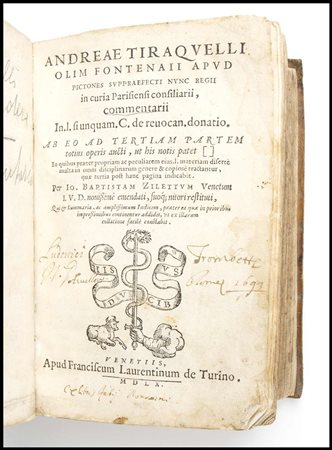 ANDREAE TIRAQVELLI
OLIM FONTENAII APVD
PICTONES SVPPRAEFECTI NVNC REGII
in curia Parisiensi consiliarii,
commentarii
In.l. si unquam. C. de reuocan. donatio.
AB EO AD TERTIAM PARTEM
totius operis aucti, ut his notis patet []
In quibus præter propriam ac peculiarem eius.l. materiam disertè
multa in omni disciplinarum genere & copiosè tractantur,
quæ tertia post hanc pagina indicabit.
Per Io. BAPTISTAM ZILETTVM Venetum
I. V. D. nouissimè emendati, suoq; nitori restituti,
Qui & Summaria, ac amplissimum Indicem, præter ea quæ in prioribus
impressionibus continentur addidit, ut ex illarum
collatione facile constabit.
Trombetti
VENETIIS,
Apud Franciscum Laurentinum de Turino.
MDLX.